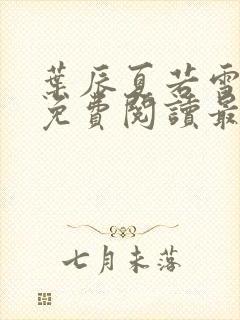 葉辰夏若雪
免費閱讀最
七月未落